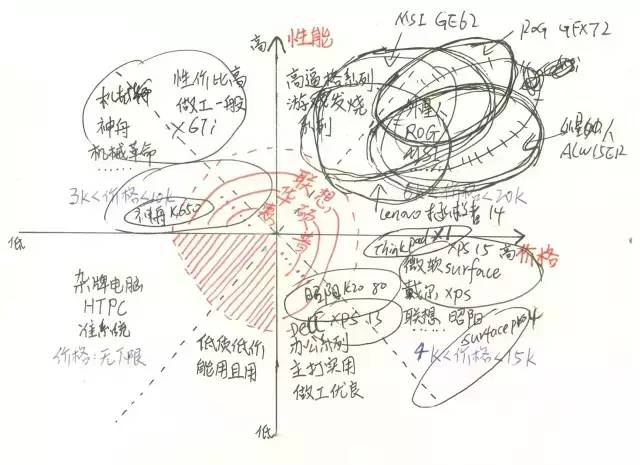 MSI GE62
ROG GFX72
高
性能
机械师
神舟
机械革命
……
性价比高
做工一般
X67i
高逼格系列
游戏发烧
系列
外星人
ROG
MSI
外星人
ALW15ER
3K<价格<10K
神舟K650
联想
华硕
<价格<20K
Lenovo 拯救者 14
低
Thinkpad X1
XPS 15
高
价格
微软surface
戴尔xps
联想 昭阳
……
surface pro4
4K<价格<15K
杂牌电脑
HTPC
准系统
价格:无下限
低使低价
能用且用
昭阳K20 80
Dell XPS 13
办公系列
主打实用
做工优良
低